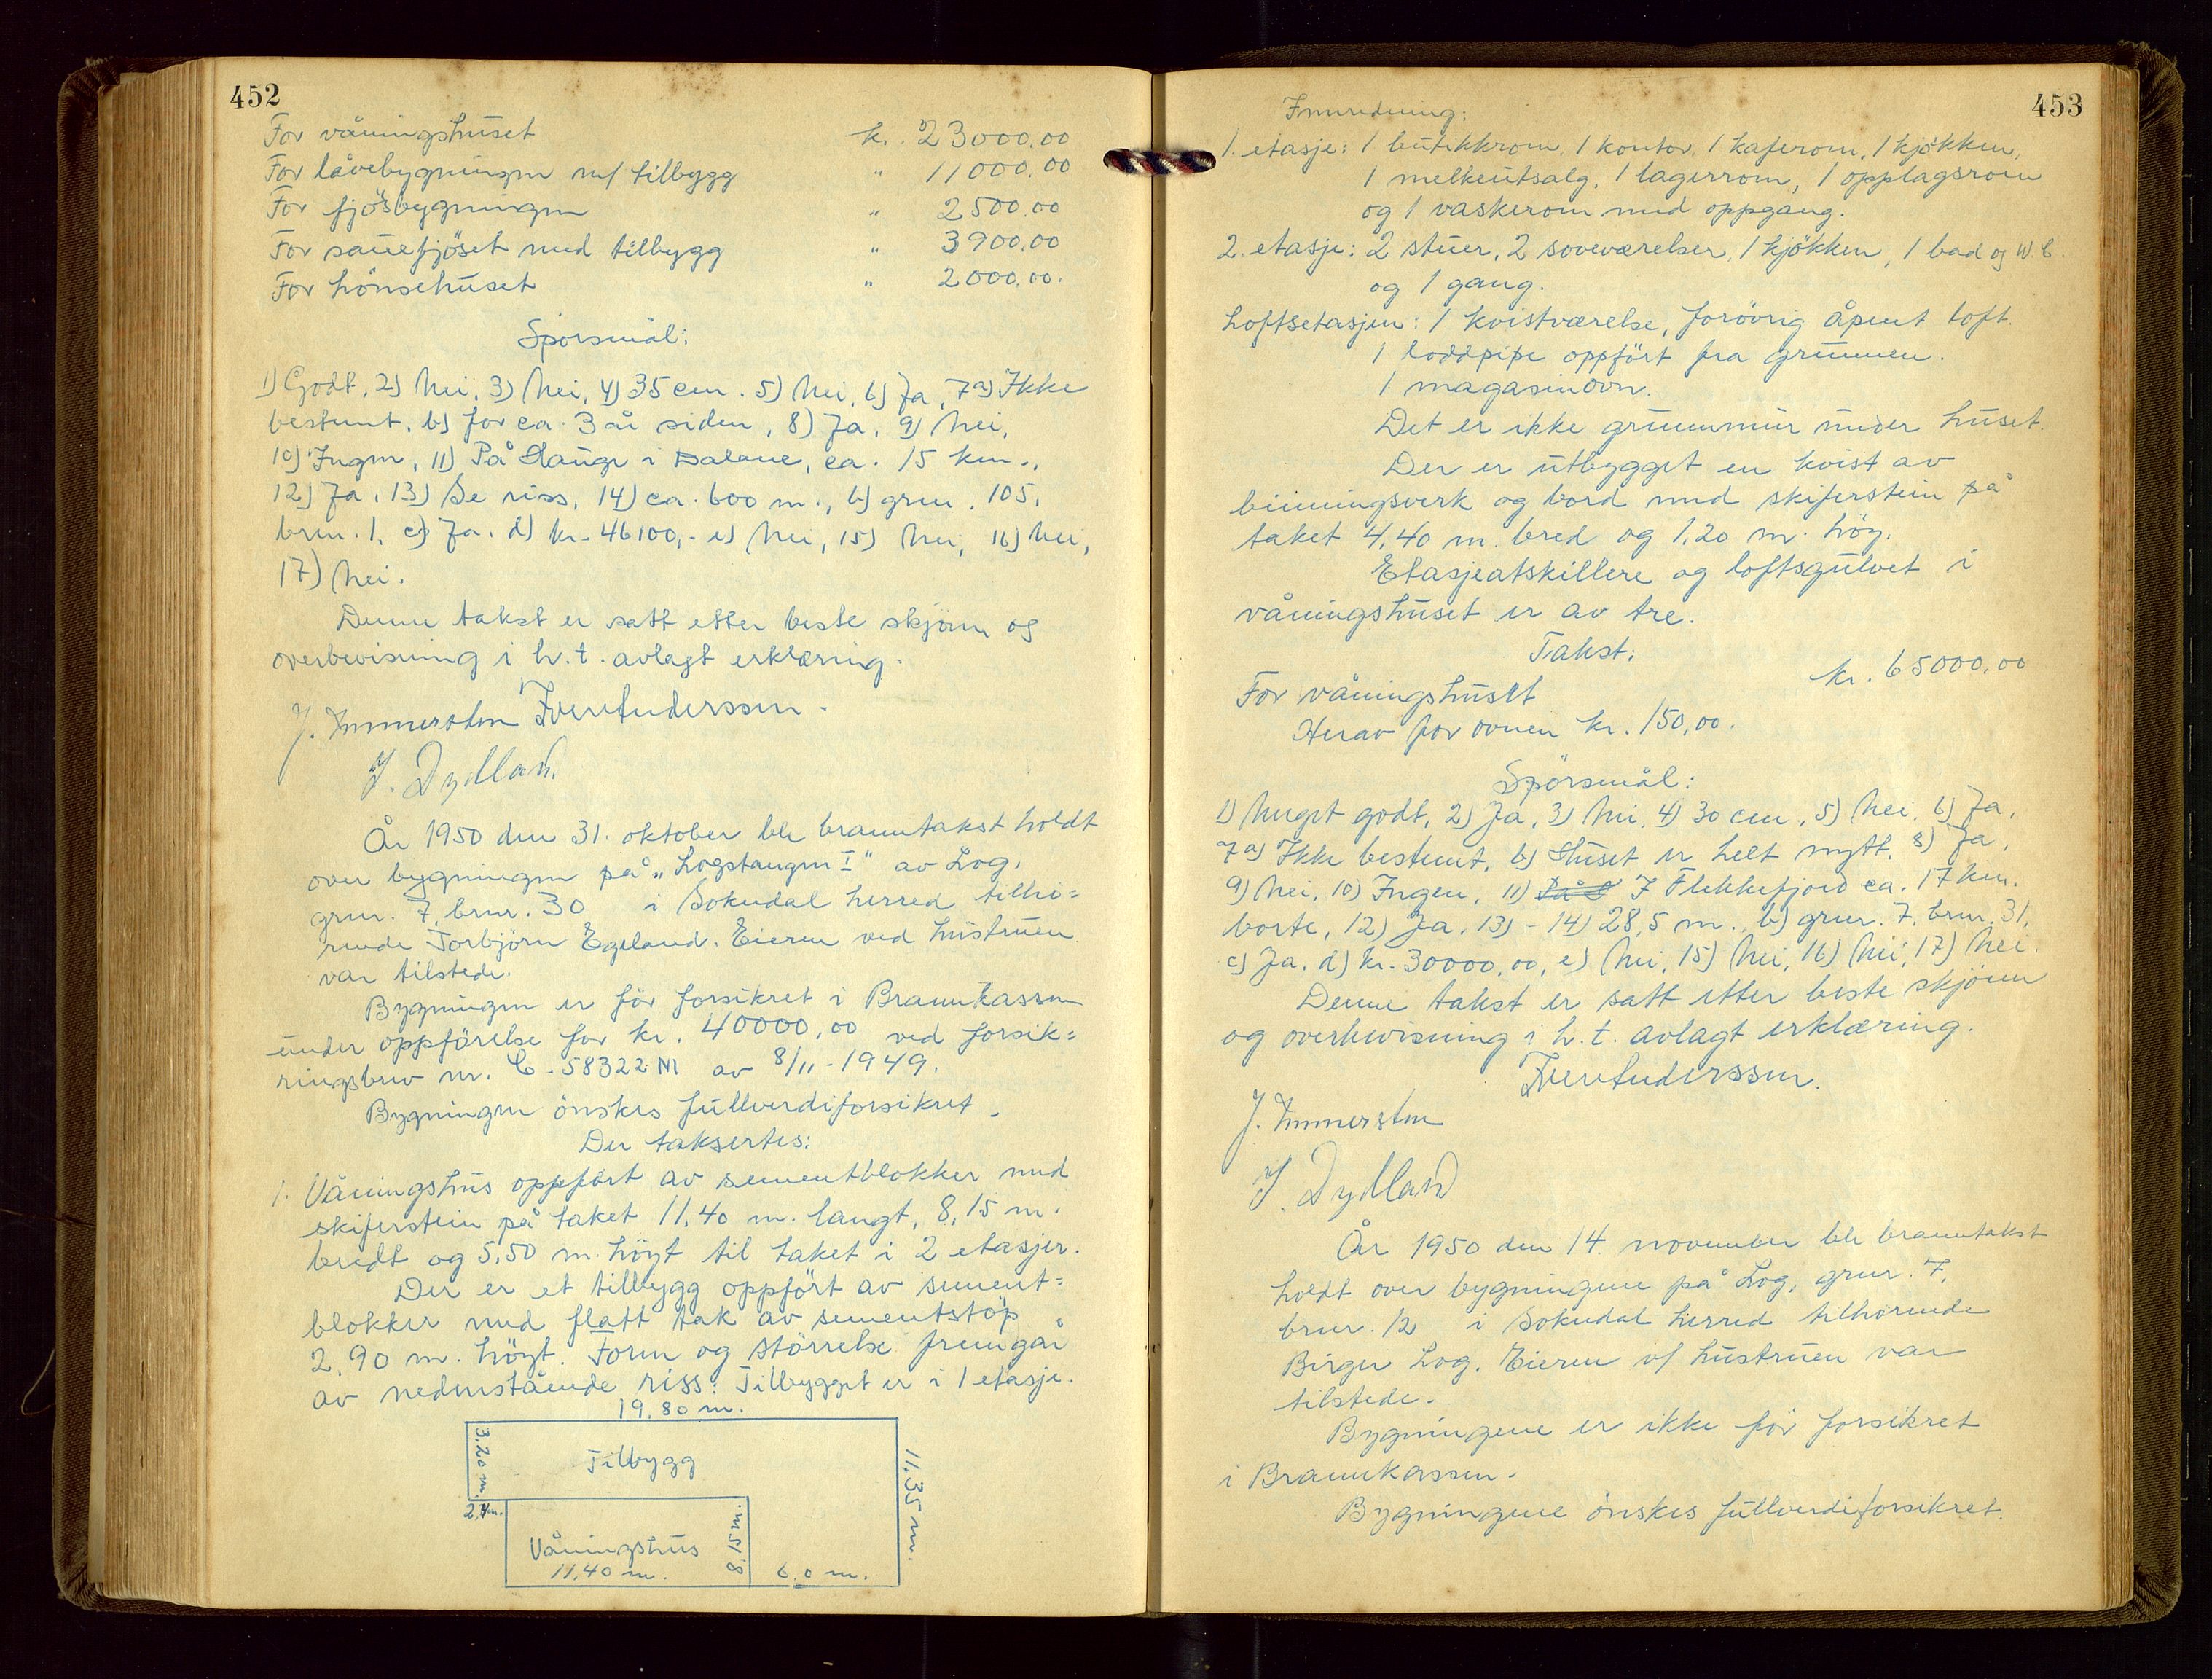 452
For våningshuset kr. 23000,00
For låvebygningen m/ tilbygg " 11000,00
For fjösbygningen " 2500,00
For sauefjöset med tilbygg " 3900,00
For hönsehuset " 2000,00.
Spörsmål:
1) Godt, 2) Nei, 3) Nei, 4) 35 cm. 5) Nei, 6) Ja, 7a) Ikke
bestemt, b) for ca. 3 år siden, 8) Ja, 9) Nei,
10) Ingen, 11) På Hauge i Dalane, ca. 15 km.,
12) Ja, 13) Se riss, 14) ca. 600 m., b) grnr. 105,
brnr. 1, c) Ja. d) kr. 46100,- e) Nei, 15) Nei, 16) Nei,
17) Nei.
Denne takst er satt etter beste skjönn og
overbevisning i h.t. avlagt erklæring.
J. Immerstein Iver Anderssen.
J. Dydland.
År 1950 den 31. oktober ble branntakst holdt
over bygningen på „Logstangen I" av Log,
grnr. 7, brnr. 30 i Sokndal herred tilhö=
rende Torbjörn Egeland. Eieren ved hustruen
var tilstede.
Bygningen er för forsikret i Brannkassen
under oppförelse for kr. 40000,00 ved forsik=
ringsbrev nr. C-58322 M av 8/11-1949.
Bygningen önskes fullverdiforsikret.
Der taksertes:
1. Våningshus oppfört av sementblokker med
skiferstein på taket 11,40 m. langt, 8,15 m.
bredt og 5,50 m. höyt til taket i 2 etasjer.
Der er et tilbygg oppfört av sement=
blokker med flatt tak av sementstöp
2,90 m. höyt. Form og störrelse fremgår
av nedenstående riss: Tilbygget er i 1 etasje.
19,80 m.
3,20 m.
Tilbygg
11,35 m.
2,4 m.
Våningshus
11,40 m.
8,15 m.
6,0 m.
453
Innredning:
1. etasje: 1 butikkrom, 1 kontor, 1 kaferom, 1 kjökken,
1 melkeutsalg, 1 lagerrom, 1 opplagsrom
og 1 vaskerom med oppgang.
2. etasje: 2 stuer, 2 soveværelser, 1 kjökken, 1 bad og W.C.
og 1 gang.
Loftsetasjen: 1 kvistværelse, forövrig åpent loft.
1 loddpipe oppfört fra grunnen.
1 magasinovn.
Det er ikke grunnmur under huset.
Der er utbygget en kvist av
bindingsverk og bord med skiferstein på
taket 4,40 m. bred og 1,20 m. höy.
Etasjeatskillere og loftsgulvet i
våningshuset er av tre.
Takst:
For våningshuset kr. 65000,00
Herav for ovnen kr. 150,00.
Spörsmål:
1) Meget godt, 2) Ja, 3) Nei, 4) 30 cm, 5) Nei, 6) Ja,
7a) Ikke bestemt, b) Huset er helt nytt, 8) Ja,
9) Nei, 10) Ingen, 11) I Flekkefjord ca. 17 km.
borte, 12) Ja, 13) - 14) 28,5 m., b) grnr. 7, brnr. 31,
c) Ja. d) kr. 30000,00, e) Nei, 15) Nei, 16) Nei, 17) Nei.
Denne takst er satt etter beste skjönn
og overbevisning i h.t. avlagt erklæring.
Iver Anderssen.
J. Immerstein
J. Dydland
År 1950 den 14. november ble branntakst
holdt over bygningene på Log, grnr. 7,
brnr. 12 i Sokndal herred tilhörende
Birger Log. Eieren v/ hustruen var
tilstede.
Bygningene er ikke för forsikret
i Brannkassen.
Bygningene önskes fullverdiforsikret.